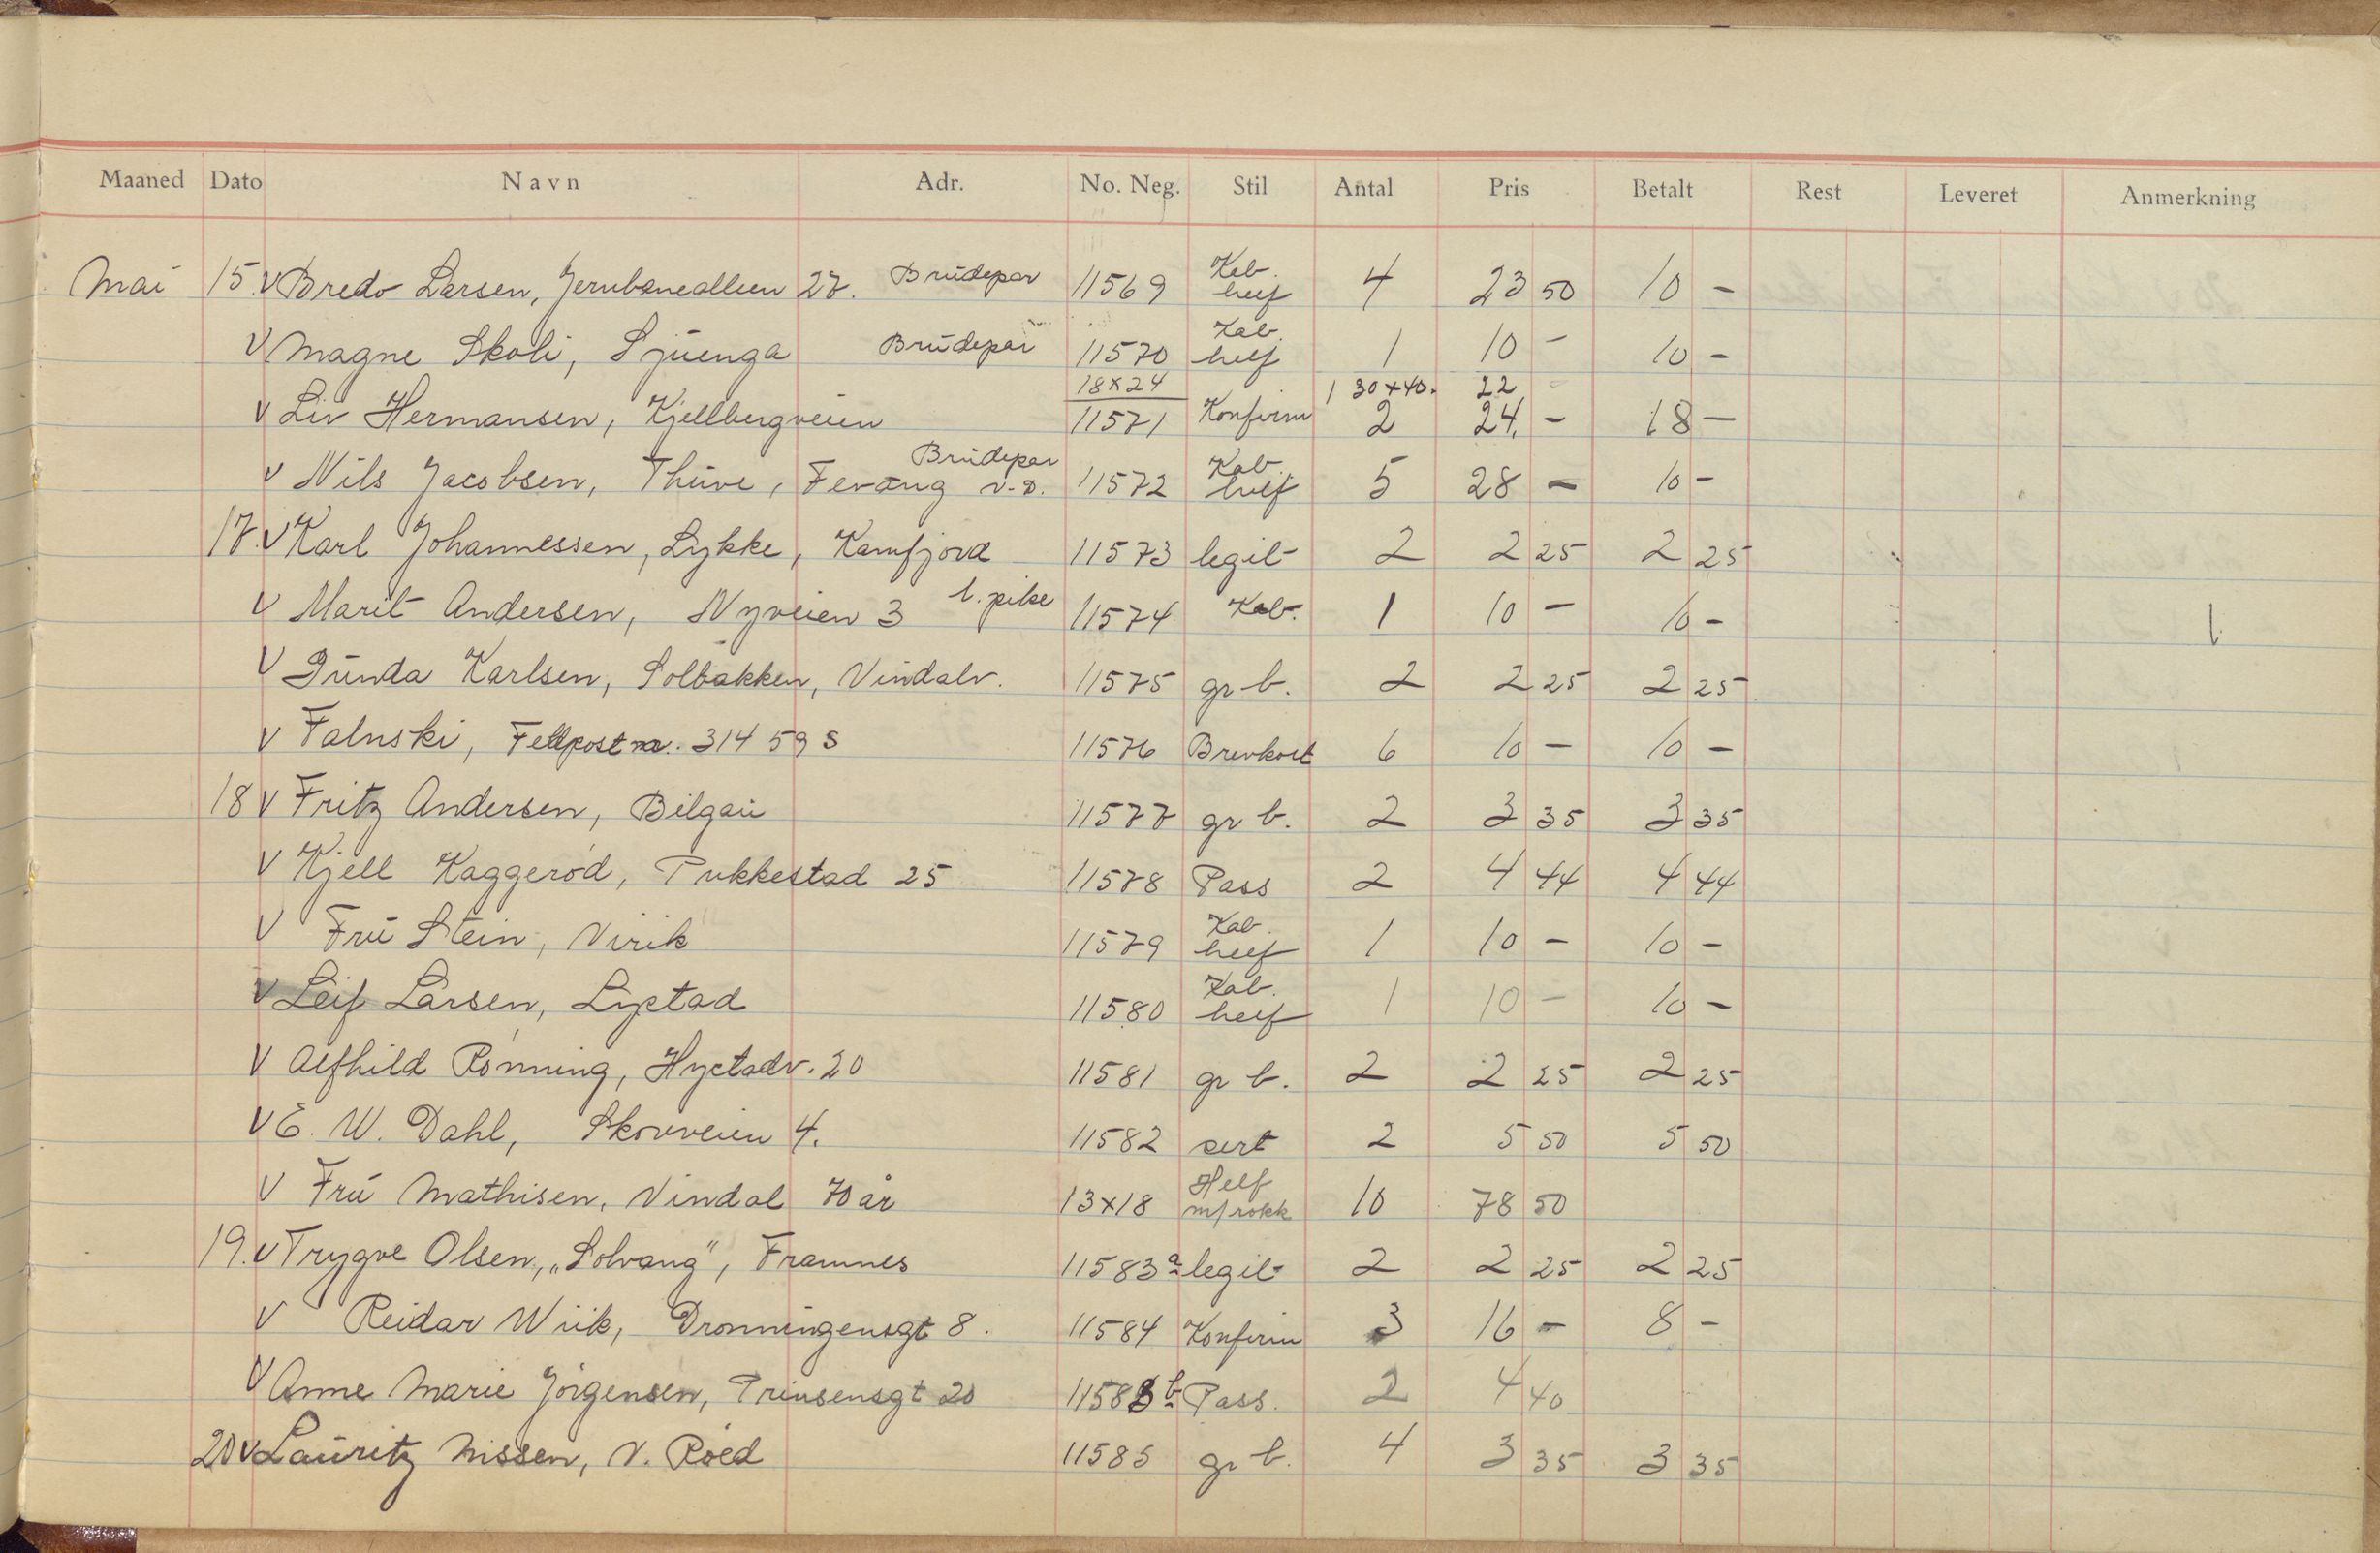 Maaned Dato Navn Adr. No. Neg. Stil Antal Pris Betalt Rest Leveret Anmerkning
Mai 15. V Bredo Larsen, Jernbanealleen 27. Brudepar 11569 Kab. helf 4 23 50 10 -
V Magne Skoli, Ljuenga Brudepar 11570 Kab. helf 1 10 - 10 -
18x24 1 30x40. 22 -
V Liv Hermansen, Kjellbergveien 11571 Konfirm 2 24, - 18 -
V Nils Jacobsen, Thuve, Fevang Brudepar 11572 Kab. helf 5 28 - 10 -
17. V Karl Johannessen, Lykke, Kamfjord 11573 legit 2 2 25 2 25
V Marit Andersen, Nyveien 3 l. pike 11574 Kab. 1 10 - 10 -
V Gunda Karlsen, Solbakken, Vindalv. 11575 gr b. 2 2 25 2 25
V Falnski, Feldpost nr. 314 59 S 11576 Brevkort 6 10 - 10 -
18 V Fritz Andersen, Bilgau 11577 gr b. 2 3 35 3 35
V Kjell Kaggerød, Pukkestad 25 11578 Pass 2 4 44 4 44
V Fru Stein, Virik 11579 Kab. helf 1 10 - 10 -
V Leif Larsen, Lystad 11580 Kab. helf 1 10 - 10 -
V Alfhild Rønning, Hystadv. 20 11581 gr b. 2 2 25 2 25
V E. W. Dahl, Skovveien 4. 11582 sert 2 5 50 5 50
V Fru Mathisen, Vindal 70 år 13x18 Helf m/rokk 10 78 50
19. V Trygve Olsen, "Solvang", Framnes 11583 a legit 2 2 25 2 25
V Reidar Wiik, Dronningensgt 8. 11584 Konfirm 3 16 - 8 -
V Anne Marie Jørgensen, Prinsensgt 20 11583 b Pass. 2 4 40
20 V Lauritz Nissen, V. Røed 11585 gr b. 4 3 35 3 35